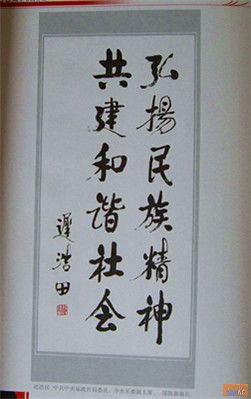 弘揚民族精神
共建和谐社会
遲浩田
迟浩田 中共中央政治局委员、中央军委副主席、国防部部长